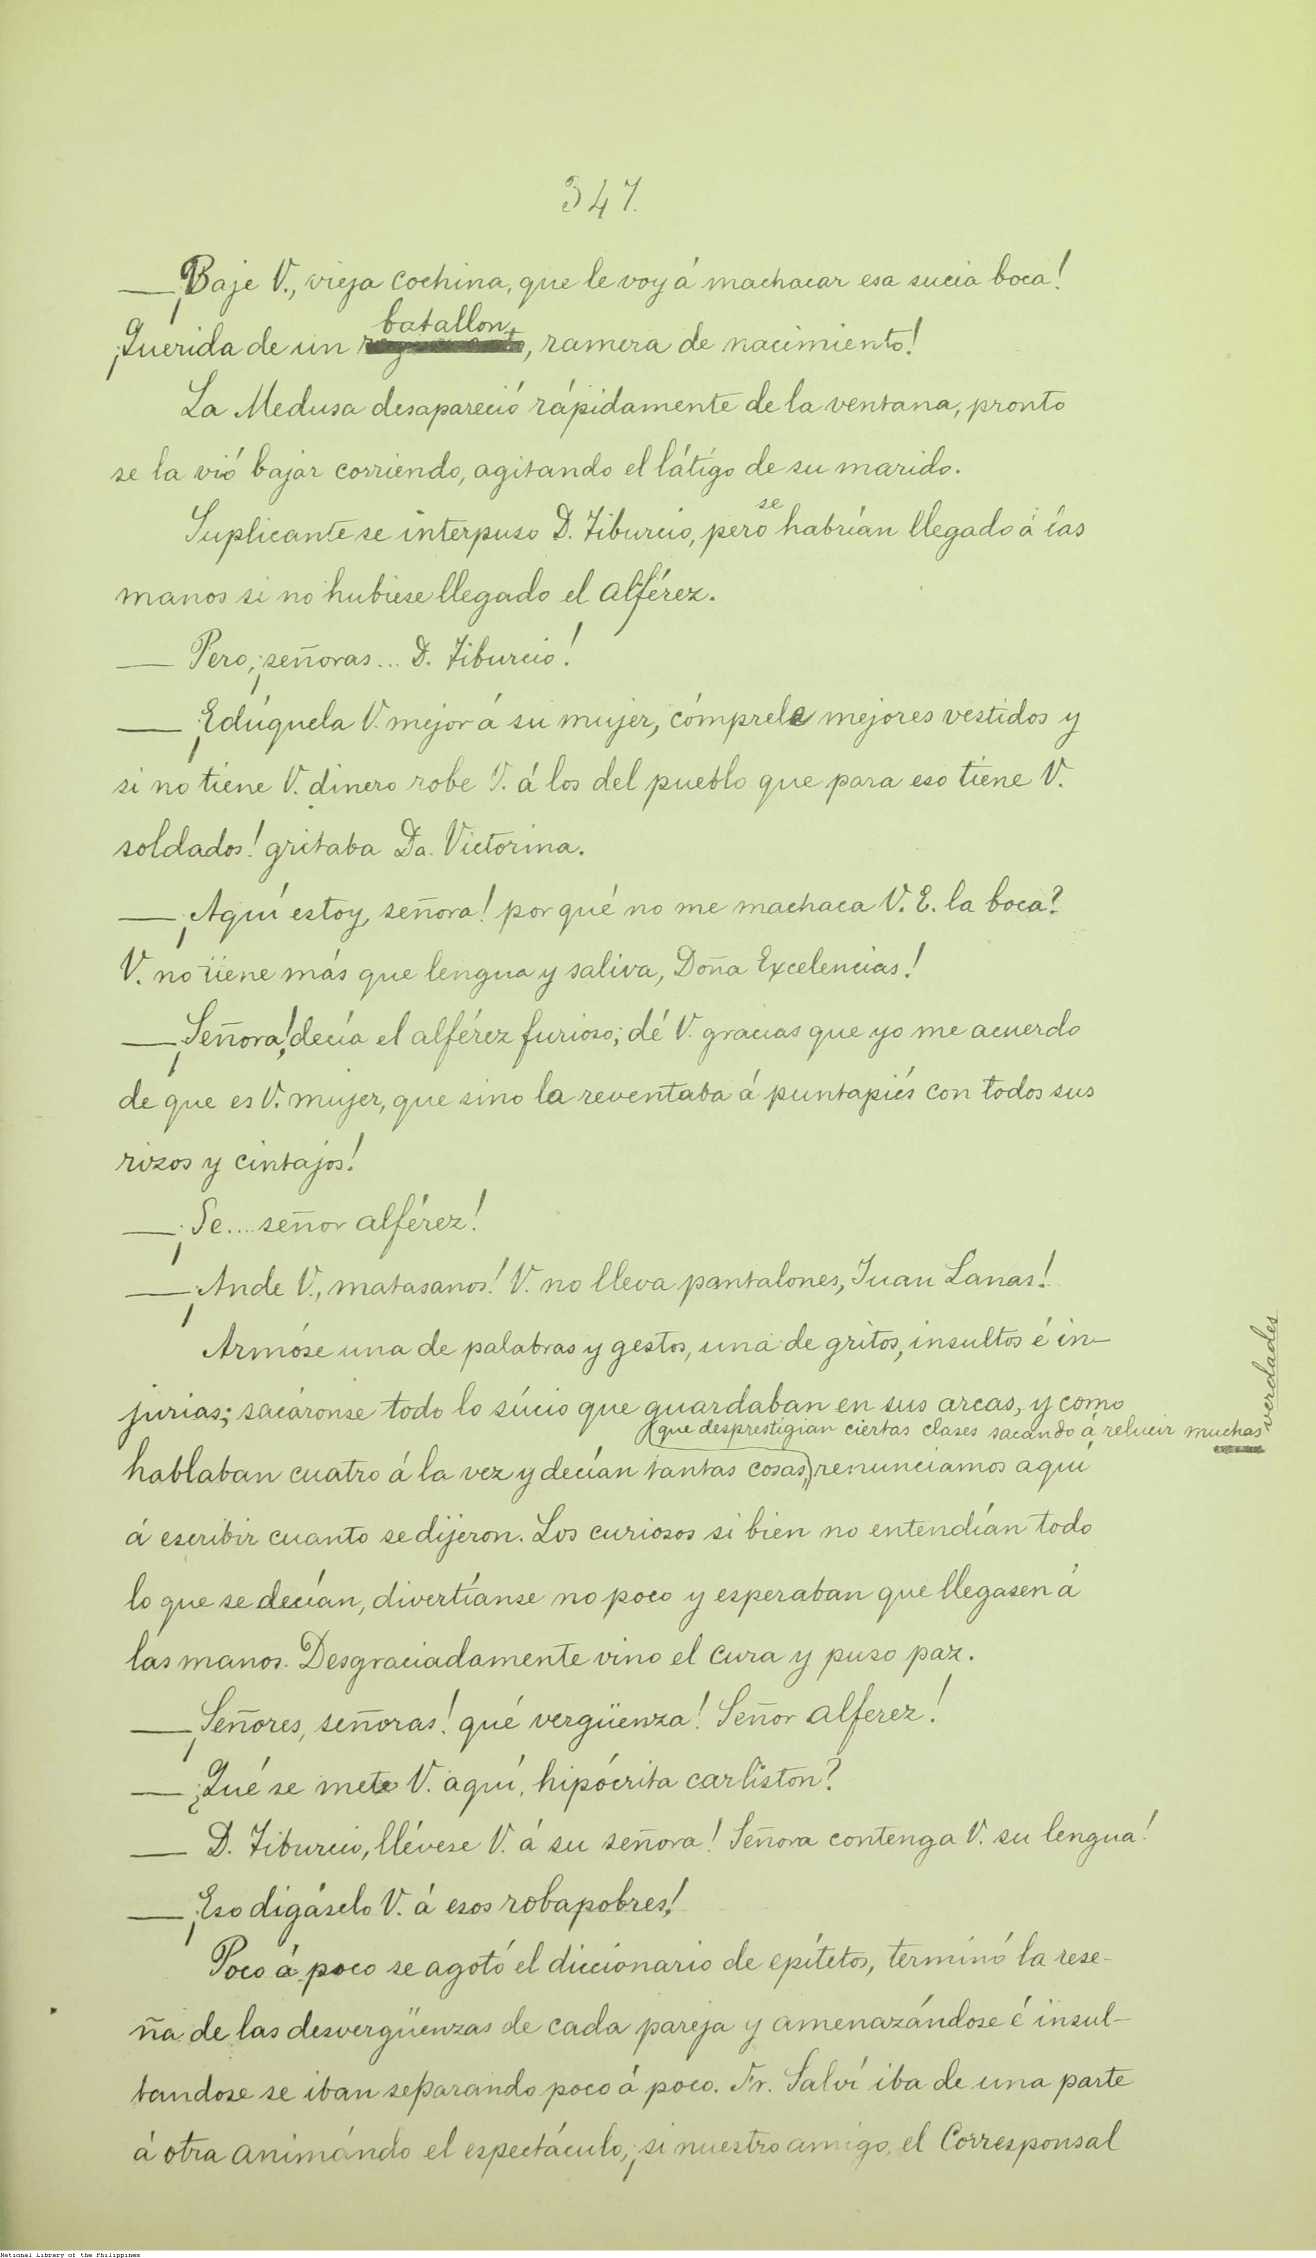 347.
— ¡Baje V., vieja cochina, que le voy á machacar esa sucia boca!
batallon
¡Querida de un , ramera de nacimiento!
La Medusa desapareció rápidamente de la ventana, pronto
se la vió bajar corriendo, agitando el látigo de su marido.
se
Suplicante se interpuso D. Tiburcio, pero habrían llegado á las
manos si no hubiese llegado el alférez.
— Pero, ¡señoras... D. Tiburcio!
— ¡Edúquela V. mejor á su mujer, cómprele mejores vestidos y
si no tiene V. dinero robe V. á los del pueblo que para eso tiene V.
soldados! gritaba Da. Victorina.
— ¡Aquí estoy, señora! por qué no me machaca V. E. la boca?
V. no tiene más que lengua y saliva, Doña Excelencias!
— ¡Señora! decía el alférez furioso; dé V. gracias que yo me acuerdo
de que es V. mujer, que sino la reventaba á puntapiés con todos sus
rizos y cintajos!
— ¡Se.... señor alférez!
— ¡Ande V., matasanos! V. no lleva pantalones, Juan Lanas!
Armóse una de palabras y gestos, una de gritos, insultos é in-
jurias; sacáronse todo lo súcio que guardaban en sus arcas, y como
(que desprestigian ciertas clases sacando á relucir muchas verdades
hablaban cuatro á la vez y decían tantas cosas,) renunciamos aquí
á escribir cuanto se dijeron. Los curiosos si bien no entendían todo
lo que se decían, divertíanse no poco y esperaban que llegasen á
las manos. Desgraciadamente vino el cura y puso paz.
— ¡Señores, señoras! qué vergüenza! Señor alferez!
— ¿Qué se mete V. aquí, hipócrita carliston?
— D. Tiburcio, llévese V. á su señora! Señora contenga V. su lengua!
— ¡Eso digáselo V. á esos robapobres!
Poco á poco se agotó el diccionario de epítetos, terminó la rese-
ña de las desvergüenzas de cada pareja y amenazándose é insul-
tandose se iban separando poco á poco. Fr. Salví iba de una parte
á otra animándo el espectáculo, ¡si nuestro amigo el Corresponsal
National Library of the Philippines